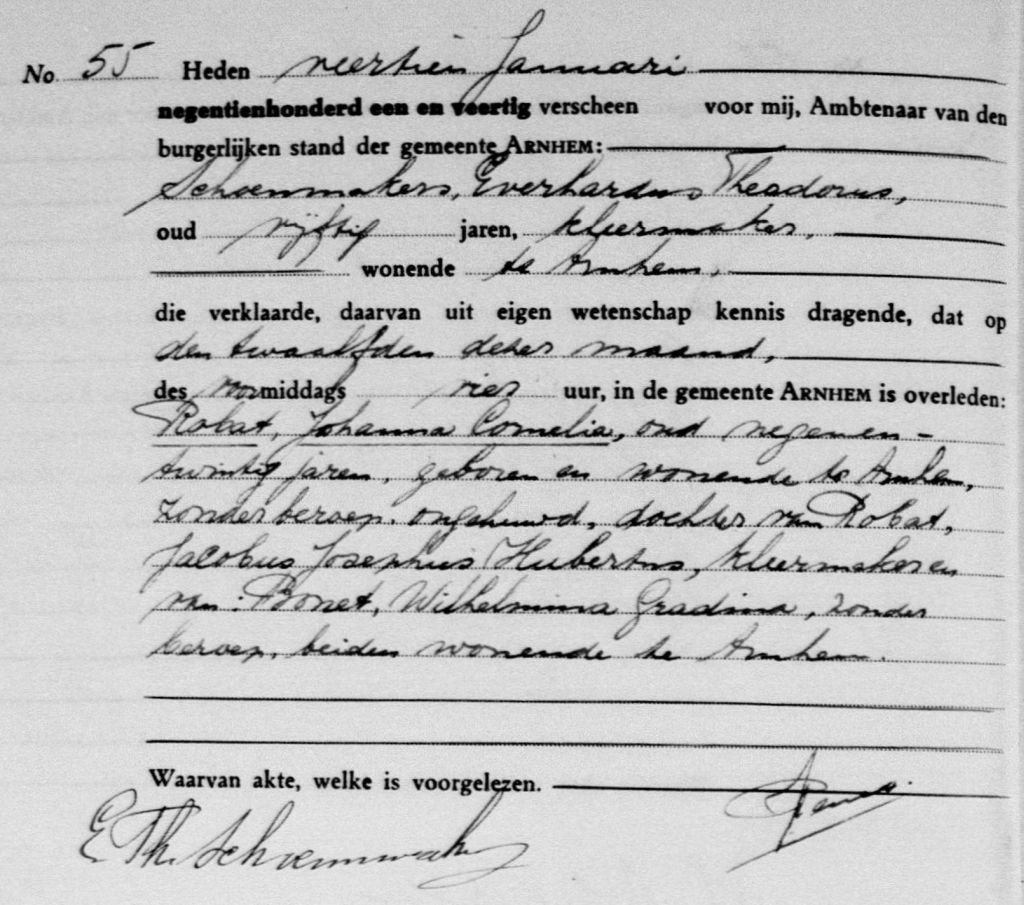 No. 55 Heden veertien Januari
negentienhonderd een en veertig verscheen voor mij, Ambtenaar van den
burgerlijken stand der gemeente ARNHEM:
Schoenmakers, Everhardus Theodorus,
oud vijftig jaren, kleermaker,
wonende te Arnhem,
die verklaarde, daarvan uit eigen wetenschap kennis dragende, dat op
den twaalfden dezer maand,
des voormiddags vier uur, in de gemeente ARNHEM is overleden:
Robat, Johanna Cornelia, oud negenen-
twintig jaren, geboren en wonende te Arnhem,
zonder beroep, ongehuwd, dochter van Robat,
Jacobus Josephus Hubertus, kleermaker en
van: Bonet, Wilhelmina Gradina, zonder
beroep, beiden wonende te Arnhem.
Waarvan akte, welke is voorgelezen.
E. Th. Schoenmakers